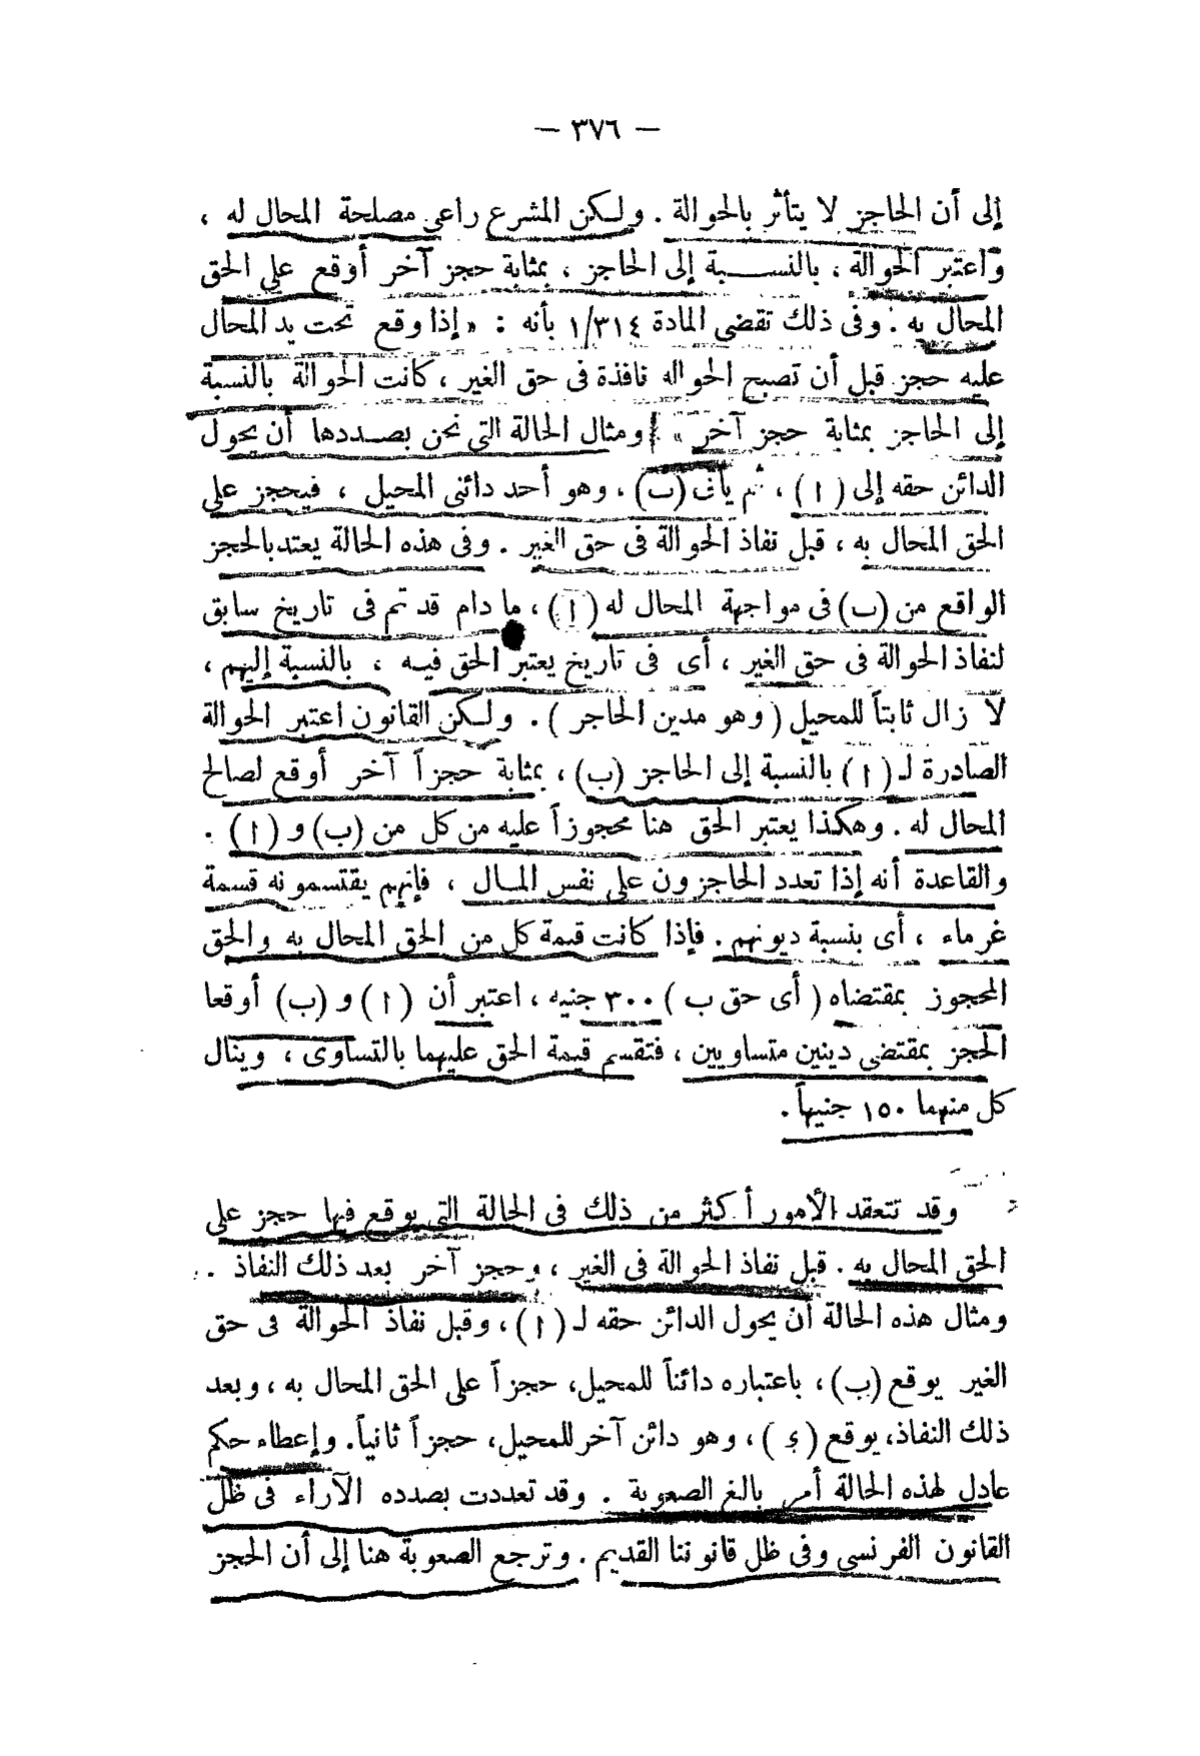 — ٣٧٦ —
إلى أن الحاجز لا يتأثر بالحوالة . ولكن المشرع راعى مصلحة المحال له ،
واعتبر الحوالة ، بالنسبة إلى الحاجز ، بمثابة حجز آخر أوقع على الحق
المحال به . وفى ذلك تقضى المادة ١/٣١٤ بأنه : « إذا وقع تحت يد المحال
عليه حجز قبل أن تصبح الحواله نافذة فى حق الغير ، كانت الحوالة بالنسبة
إلى الحاجز بمثابة حجز آخر » . ومثال الحالة التى نحن بصددها أن يحول
الدائن حقه إلى ( ا ) ، ثم يأتى (ب) ، وهو أحد دائنى المحيل ، فيحجز على
الحق المحال به ، قبل نفاذ الحوالة فى حق الغير . وفى هذه الحالة يعتد بالحجز
الواقع من (ب) فى مواجهة المحال له ( ا ) ، ما دام قد تم فى تاريخ سابق
لنفاذ الحوالة فى حق الغير ، أى فى تاريخ يعتبر الحق فيه ، بالنسبة إليهم ،
لا زال ثابتاً للمحيل ( وهو مدين الحاجر ) . ولكن القانون اعتبر الحوالة
الصادرة لـ ( ا ) بالنسبة إلى الحاجز (ب) ، بمثابة حجزاً آخر أوقع لصالح
المحال له . وهكذا يعتبر الحق هنا محجوزاً عليه من كل من (ب) و ( ا ) .
والقاعدة أنه إذا تعدد الحاجزون على نفس المال ، فإنهم يقتسمونه قسمة
غرماء ، أى بنسبة ديونهم . فإذا كانت قيمة كل من الحق المحال به والحق
المحجوز بمقتضاه ( أى حق ب ) ٣٠٠ جنيه ، اعتبر أن ( ا ) و (ب) أوقعا
الحجز بمقتضى دينين متساويين ، فتقسم قيمة الحق عليهما بالتساوى ، وينال
كل منهما ١٥٠ جنيهاً .
وقد تتعقد الأمور أكثر من ذلك فى الحالة التى يوقع فيها حجز على
الحق المحال به . قبل نفاذ الحوالة فى الغير ، وحجز آخر بعد ذلك النفاذ .
ومثال هذه الحالة أن يحول الدائن حقه لـ ( ا ) ، وقبل نفاذ الحوالة فى حق
الغير يوقع (ب) ، باعتباره دائناً للمحيل، حجزاً على الحق المحال به ، وبعد
ذلك النفاذ، يوقع ( ء ) ، وهو دائن آخر للمحيل، حجزاً ثانياً. وإعطاء حكم
عادل لهذه الحالة أمر بالغ الصعوبة . وقد تعددت بصدده الآراء فى ظل
القانون الفرنسى وفى ظل قانوننا القديم . وترجع الصعوبة هنا إلى أن الحجز